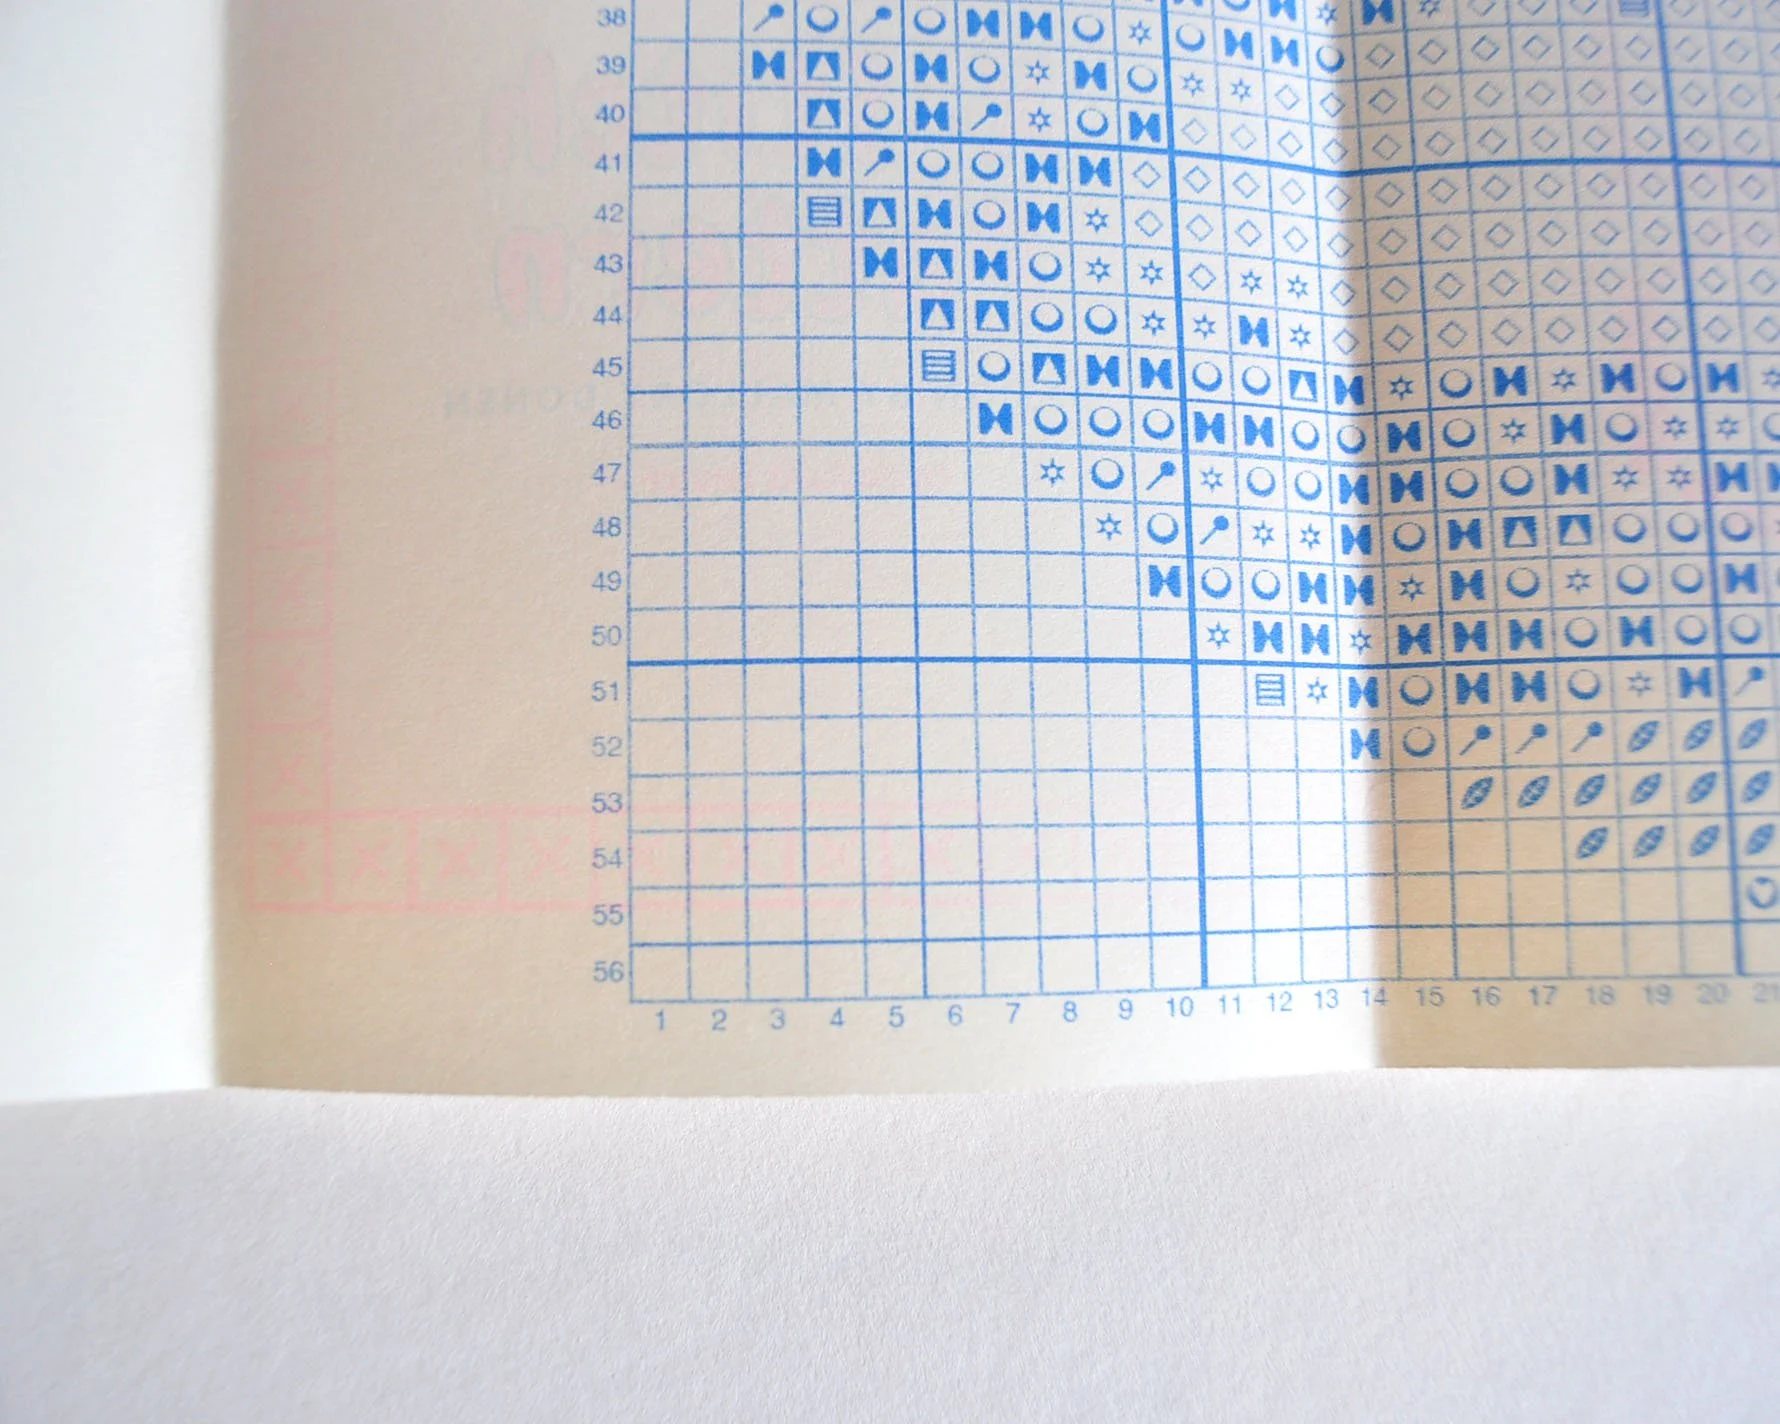 38
39
40
41
42
43
44
45
46
47
48
49
50
51
52
53
54
55
56
1 2 3 4 5 6 7 8 9 10 11 12 13 14 15 16 17 18 19 20